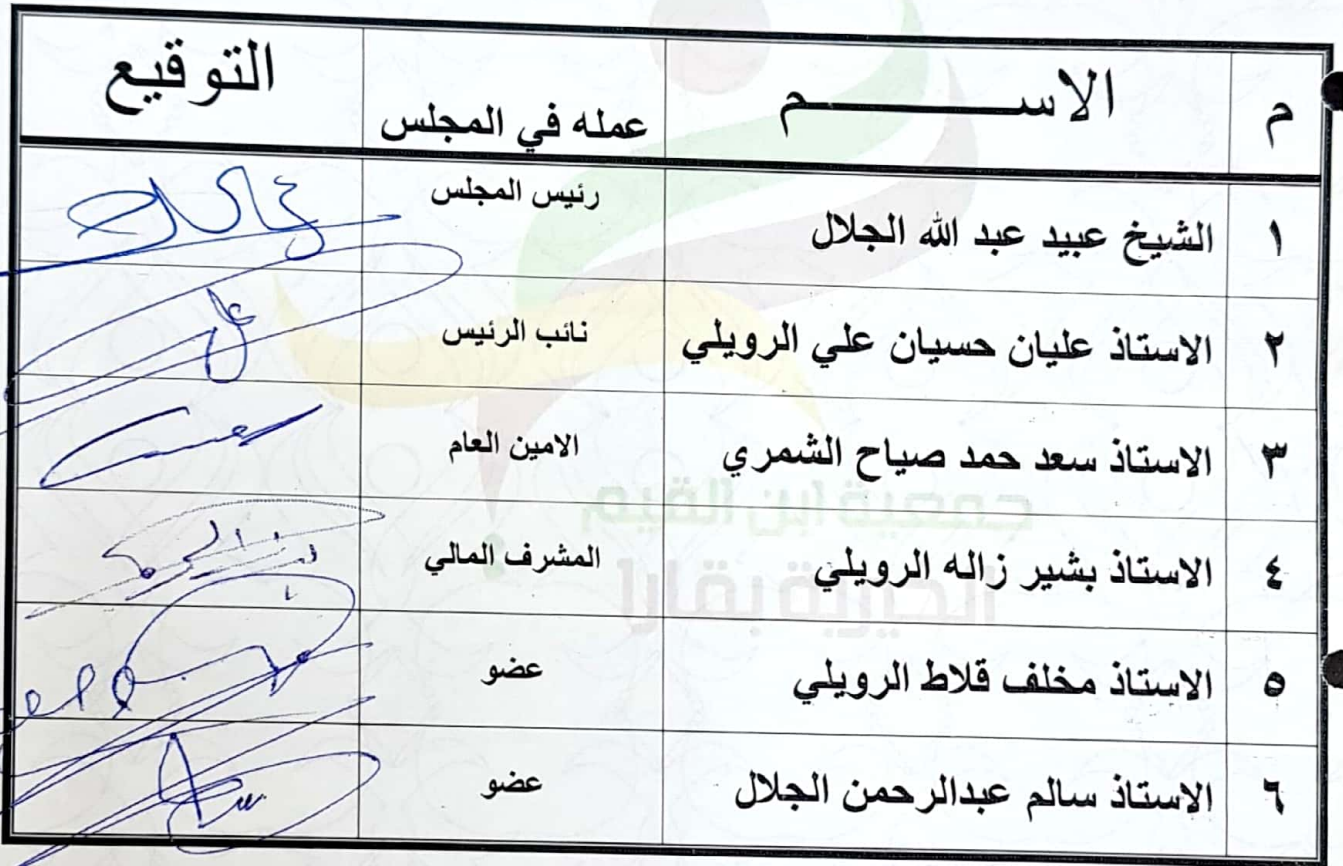 م الاســـــــــــم عمله في المجلس التوقيع
١ الشيخ عبيد عبد الله الجلال رئيس المجلس
٢ الاستاذ عليان حسيان علي الرويلي نائب الرئيس
٣ الاستاذ سعد حمد صياح الشمري الامين العام
٤ الاستاذ بشير زاله الرويلي المشرف المالي
٥ الاستاذ مخلف قلاط الرويلي عضو
٦ الاستاذ سالم عبدالرحمن الجلال عضو
جمعية ابن القيم
الخيرية بقارا